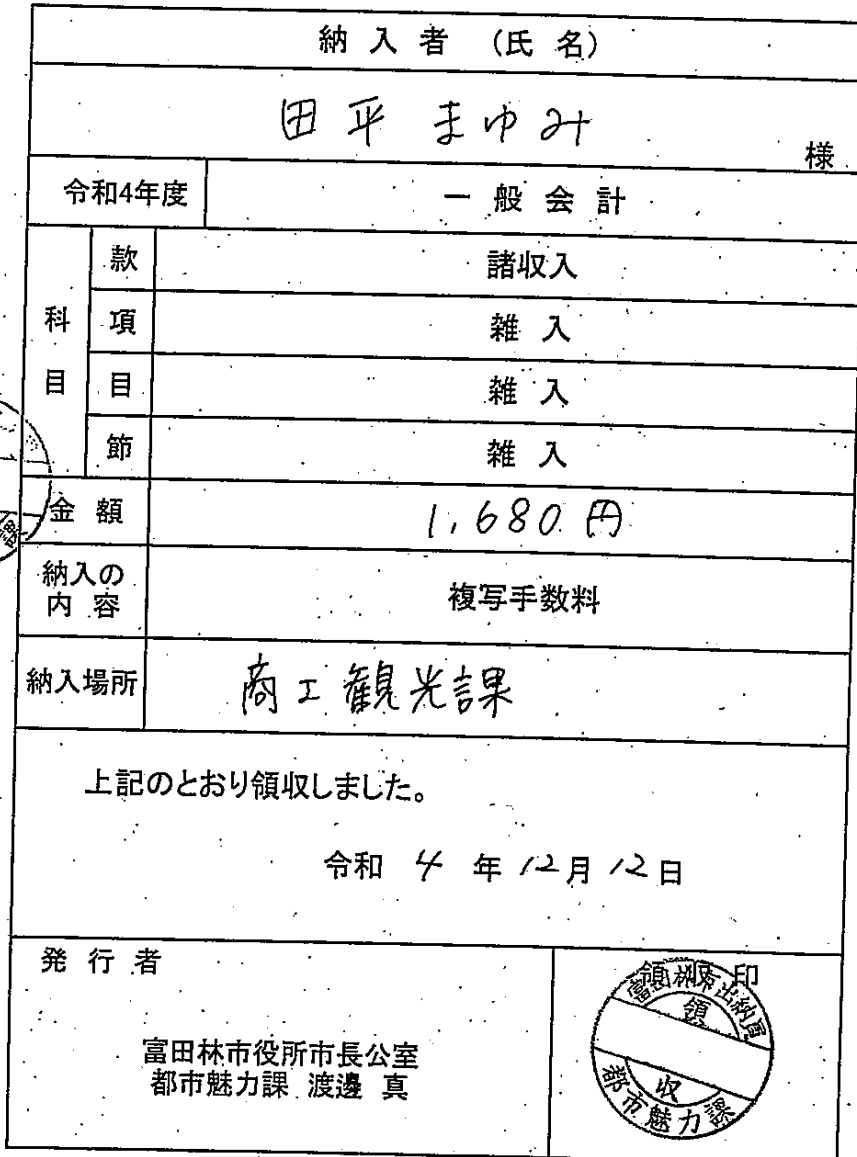 納入者 (氏名)
田平 まゆみ 様
令和4年度 一般会計
科目 款 諸収入
項 雑入
目 雑入
節 雑入
金額 1,680円
納入の内容 複写手数料
納入場所 商工観光課
上記のとおり領収しました。
令和 4 年 12月 12日
発行者
富田林市役所市長公室
都市魅力課 渡邊 真
領収印
富田林市出納員
領
収
都市魅力課
課